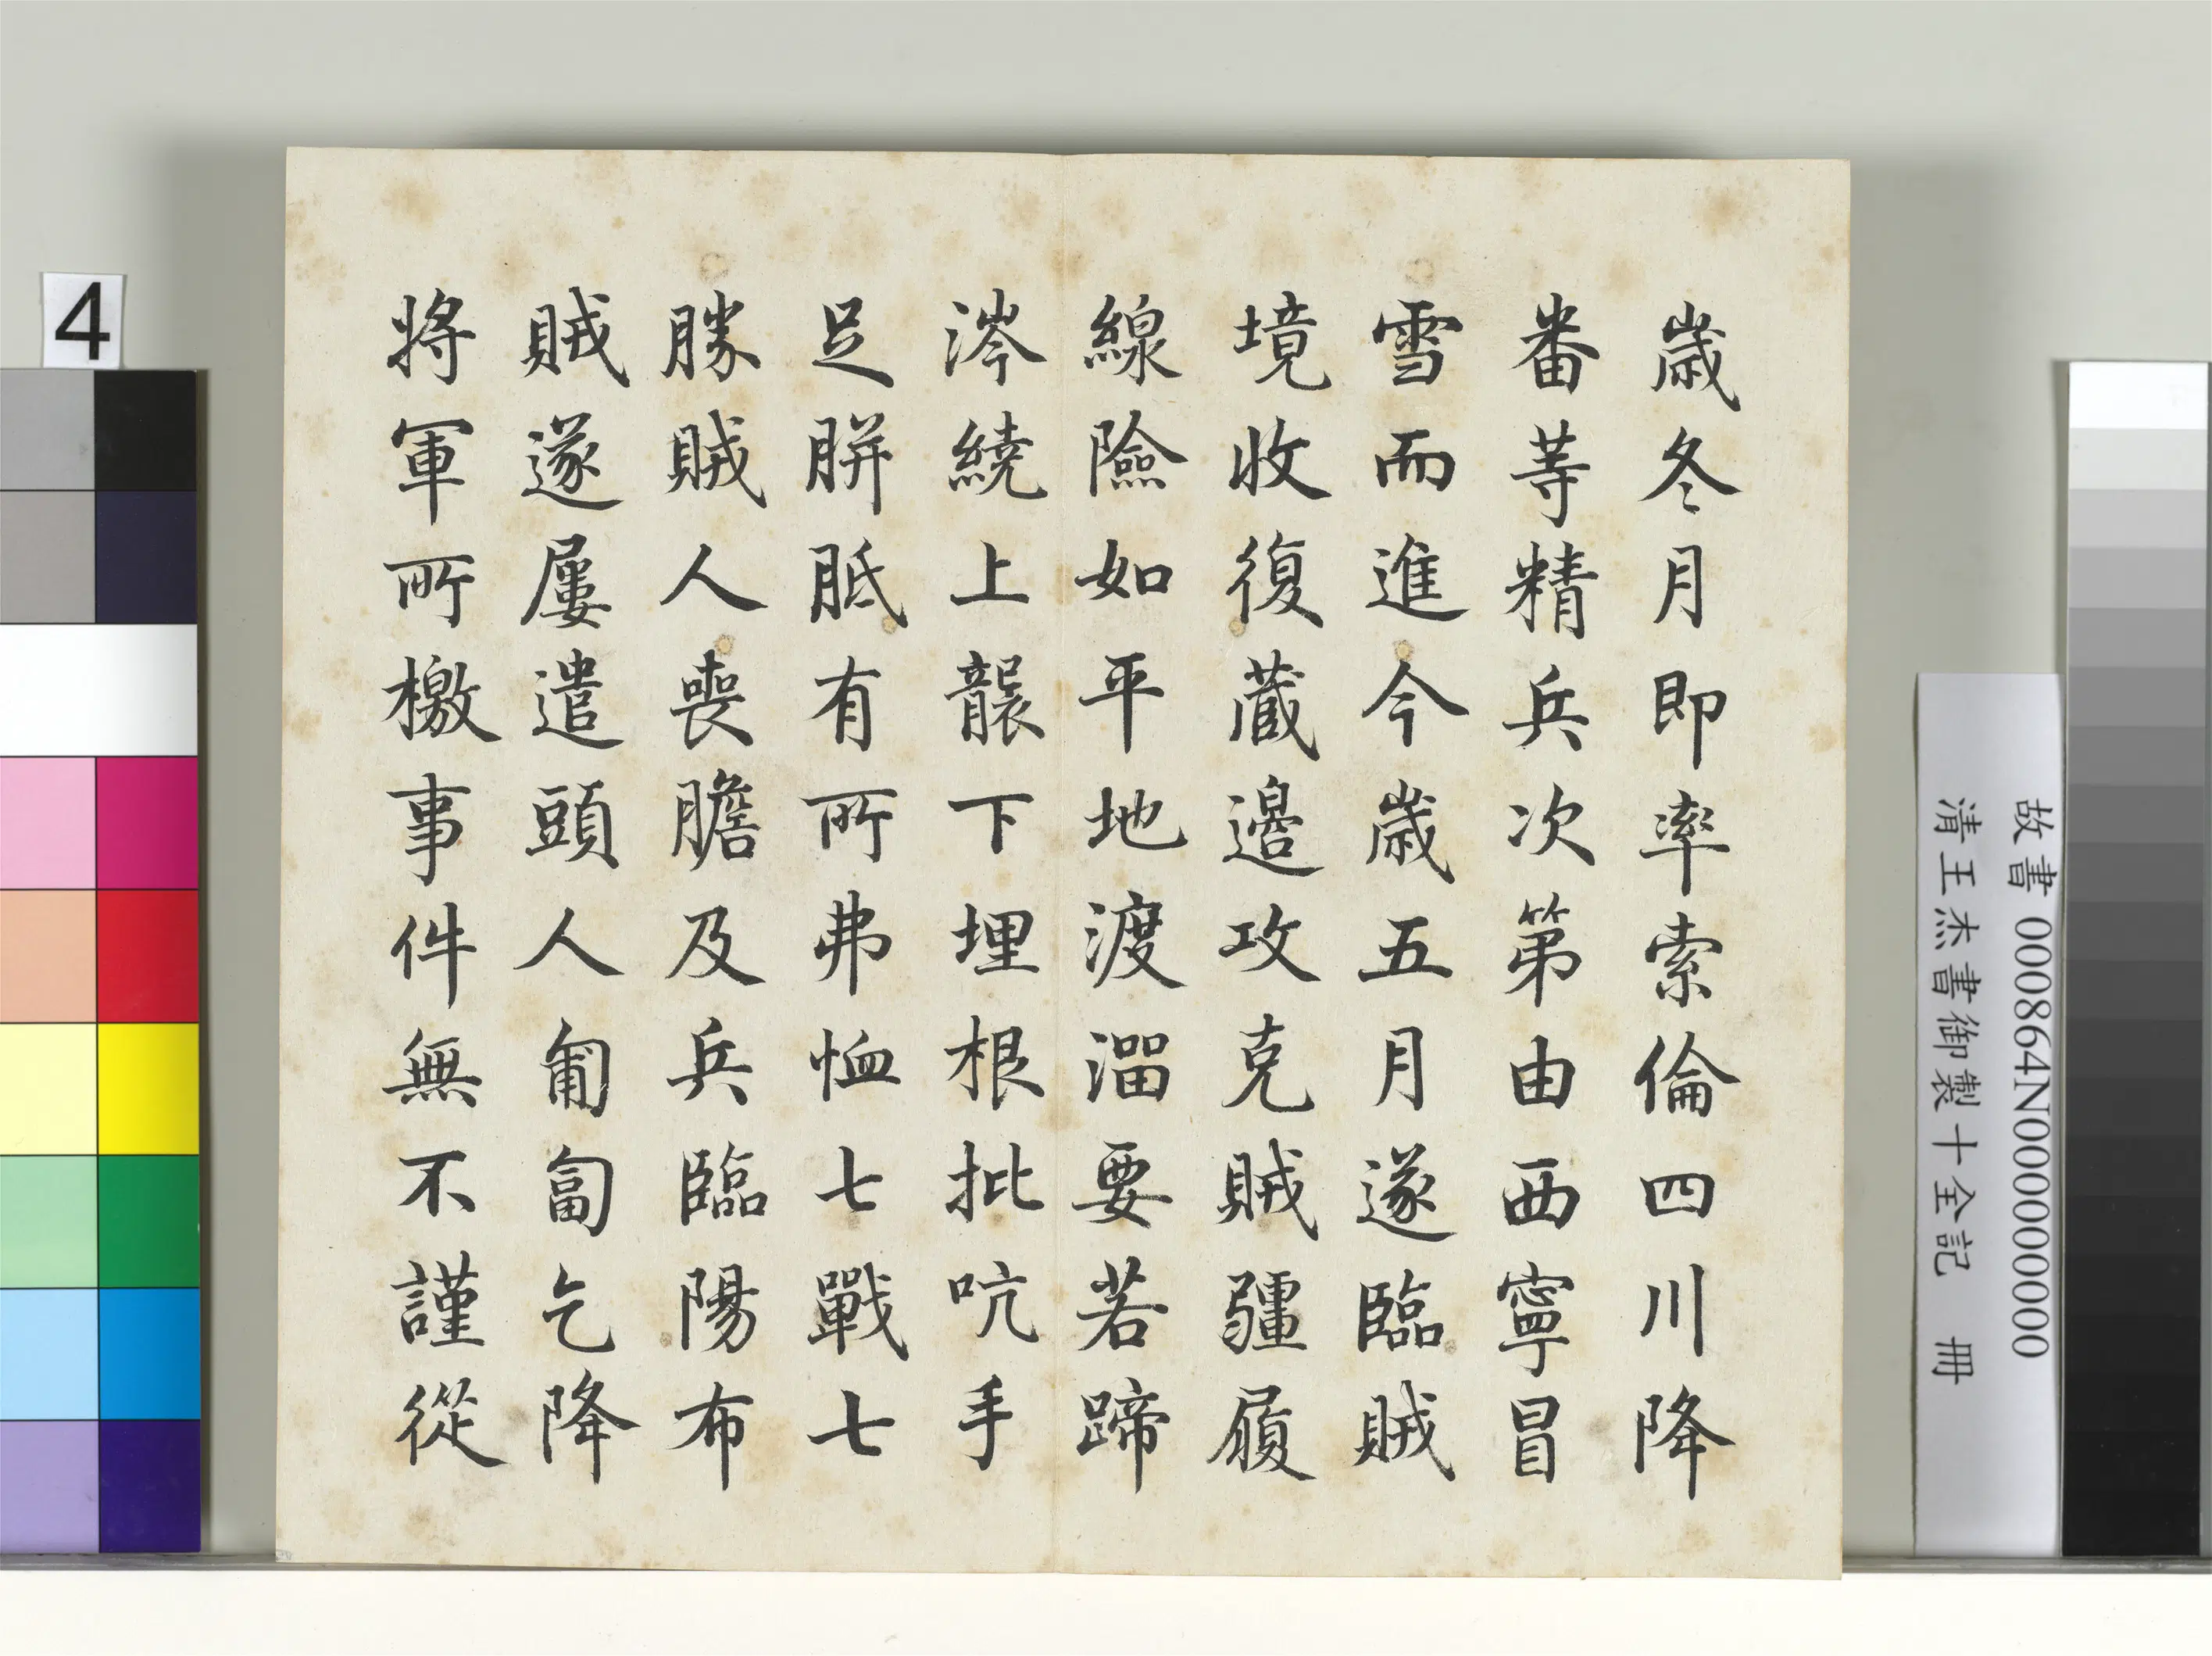 歲冬月即率索倫四川降
番等精兵次第由西寧冒
雪而進今歲五月遂臨賊
境收復藏邊攻克賊疆履
線險如平地渡溜要若蹄
涔繞上襲下埋根批吭手
足胼胝有所弗恤七戰七
勝賊人喪膽及兵臨陽布
賊遂屢遣頭人匍匐乞降
將軍所檄事件無不謹從
4
故書 000864N000000000
清王杰書御製十全記 冊